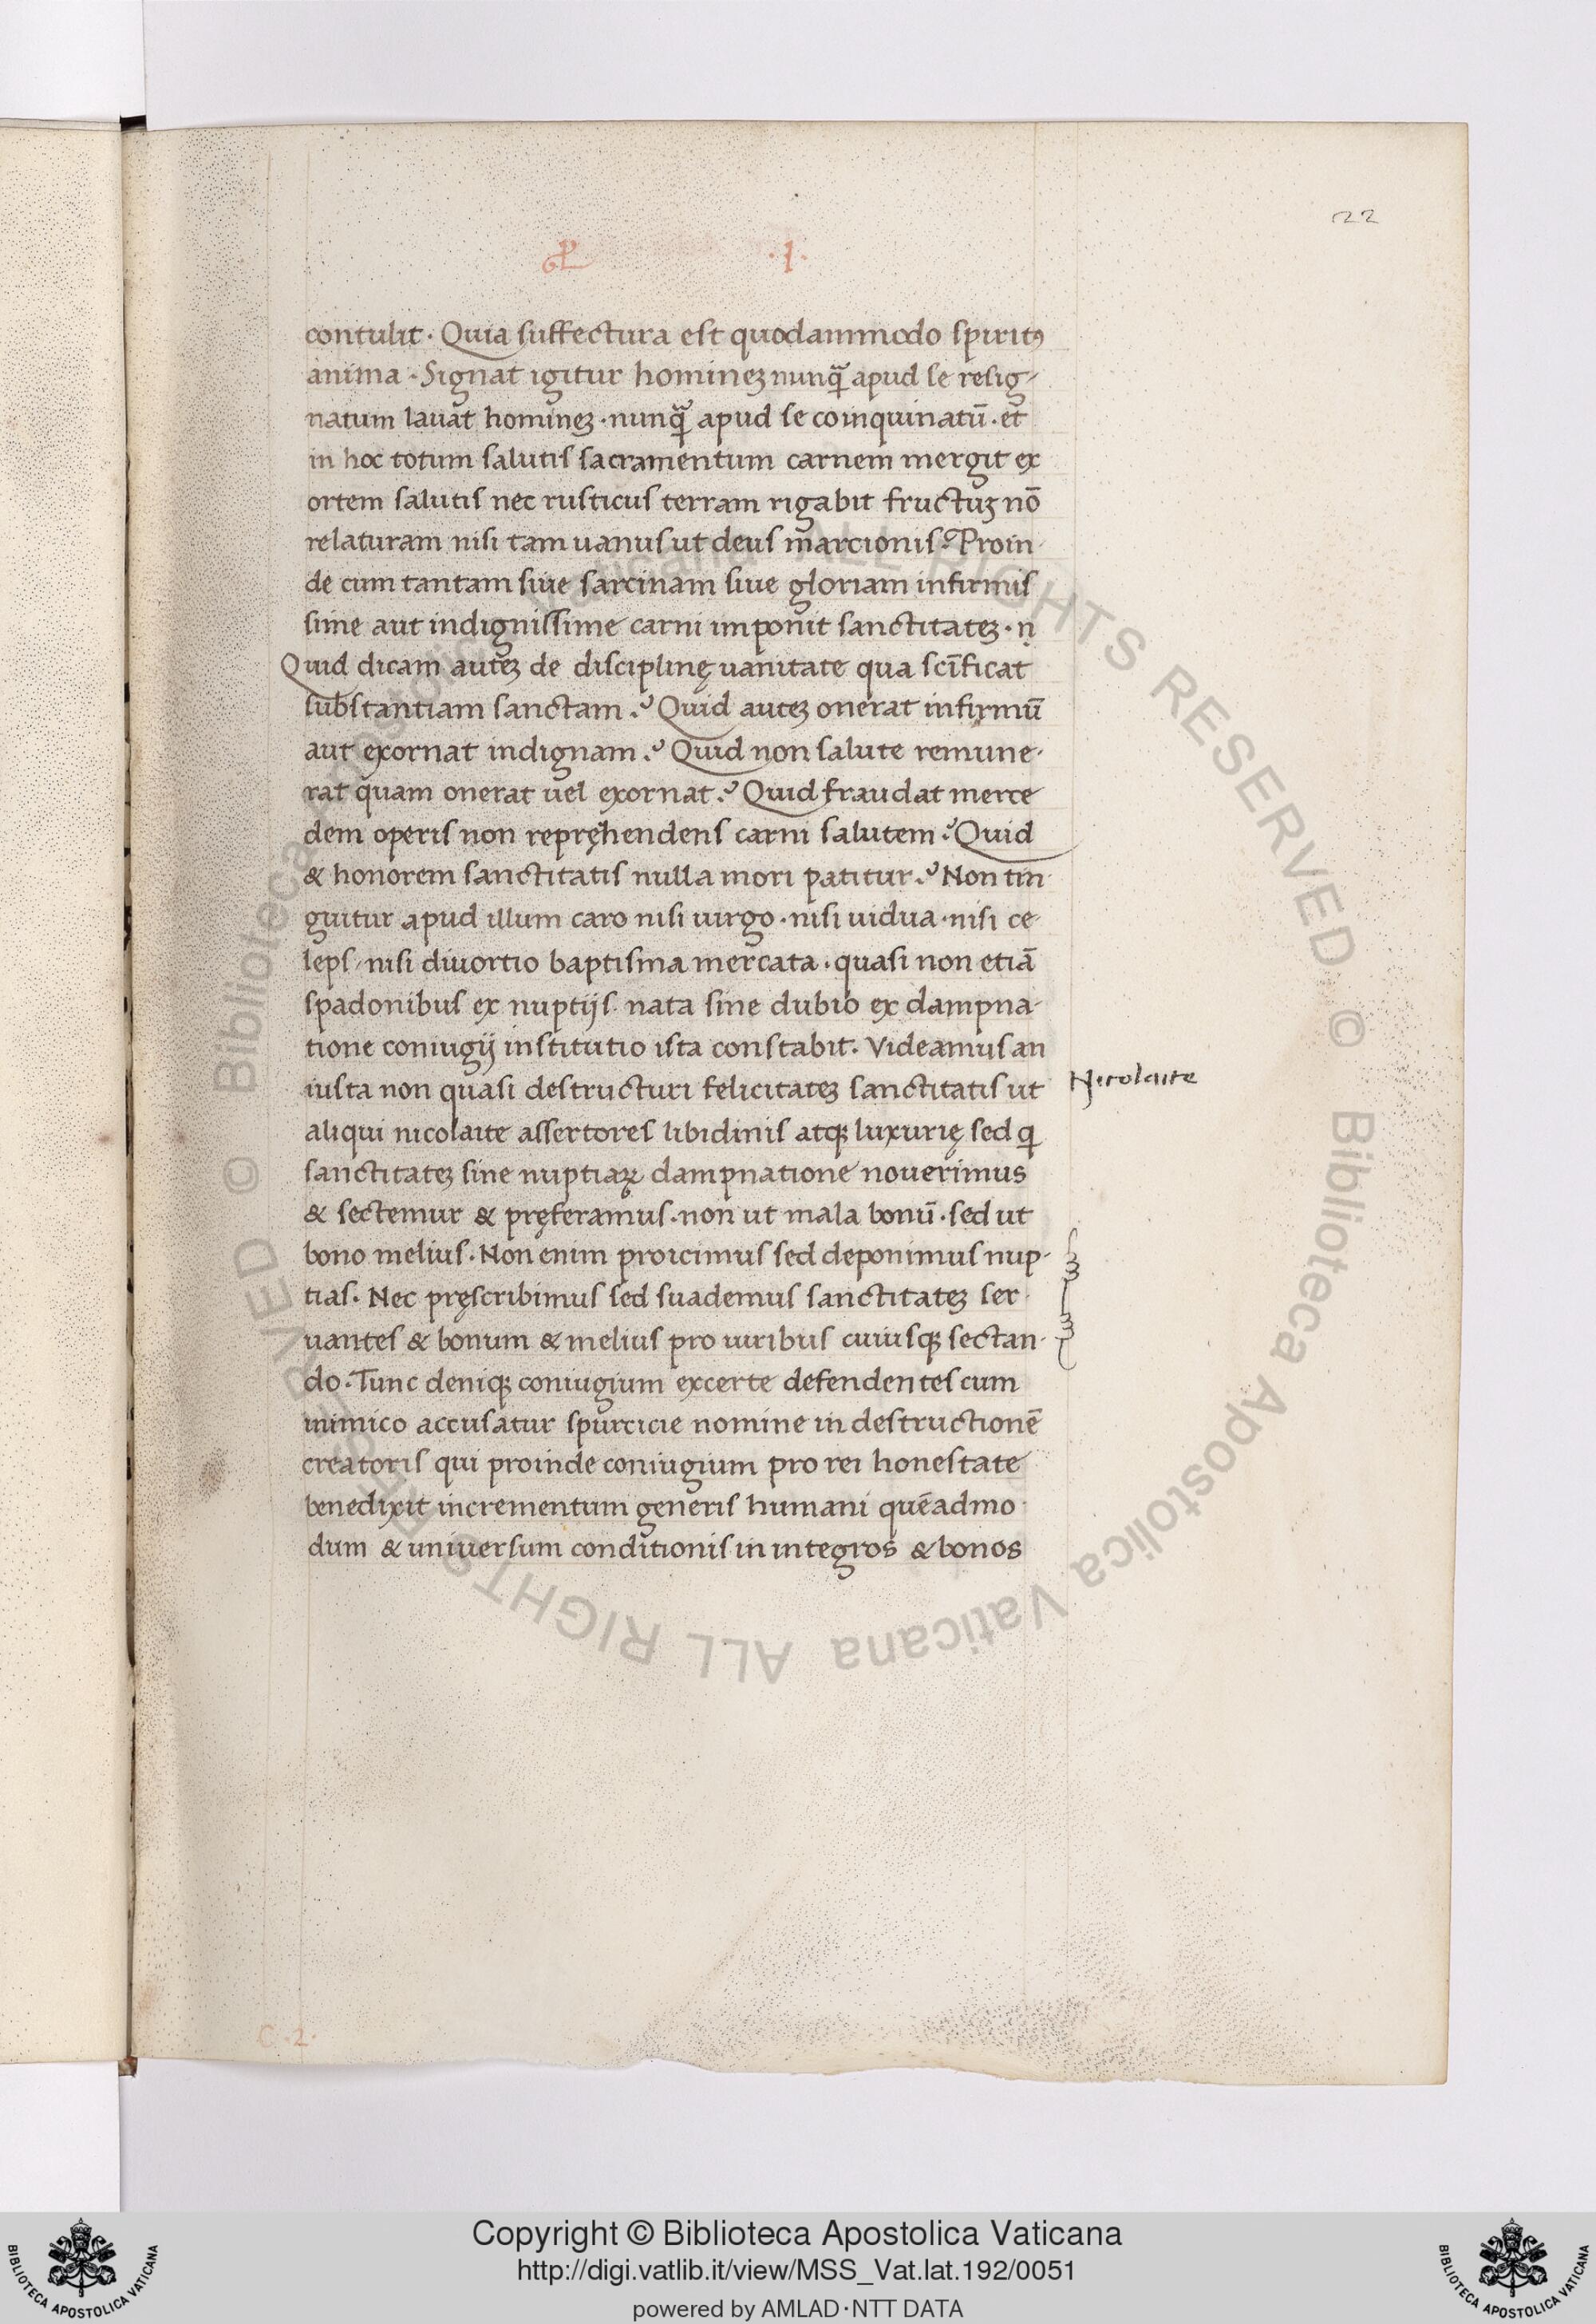 22
·1·
contulit. Quia suffectura est quodammodo spiritꝰ
anima. Signat igitur homineꝫ nunꝙ̃ apud se resig-
natum lavat homineꝫ. nunꝙ̃ apud se coinquinatū. et
in hoc totum salutis sacramentum carnem mergit ex
ortem salutis nec rusticus terram rigabit fructuꝫ nō
relaturam nisi tam uanus ut deus marcionis? Proin-
de cum tantam siue sarcinam siue gloriam infirmis
sime aut indignissime carni imponit sanctitateꝫ.
Quid dicam auteꝫ de disciplinę uanitate qua scīficat
substantiam sanctam? Quid auteꝫ onerat infirmū
aut exornat indignam? Quid non salute remune-
rat quam onerat uel exornat? Quid fraudat merce
dem operis non repręhendens carni salutem? Quid
& honorem sanctitatis nulla mori patitur? Non tin-
guitur apud illum caro nisi uirgo. nisi uidua. nisi ce-
leps, nisi diuortio baptisma mercata. quasi non etiā
spadonibus ex nuptijs nata sine dubio ex dampna-
tione coniugij institutio ista constabit. Videamus an
iusta non quasi destructuri felicitateꝫ sanctitatis ut
Nicolaite
aliqui nicolaite assertores libidinis atqꝫ luxurię sed ꝗ
sanctitateꝫ sine nuptiaꝝ dampnatione nouerimus
& sectemur & pręferamus. non ut mala bonū. sed ut
bono melius. Non enim proicimus sed deponimus nup-
tias. Nec pręscribimus sed suademus sanctitateꝫ ser-
uantes & bonum & melius pro uiribus cuiusqꝫ sectan-
do. Tunc deniqꝫ coniugium excerte defendentes cum
inimico accusatur spurcicie nomine in destructionē
creatoris qui proinde coniugium pro rei honestate
benedixit incrementum generis humani quēadmo-
dum & universum conditionis in integros & bonos
C·2·
© Biblioteca Apostolica Vaticana ALL RIGHTS RESERVED © Biblioteca Apostolica Vaticana ALL RIGHTS RESERVED
Copyright © Biblioteca Apostolica Vaticana
http://digi.vatlib.it/view/MSS_Vat.lat.192/0051
powered by AMLAD·NTT DATA
BIBLIOTECA APOSTOLICA VATICANA
BIBLIOTECA APOSTOLICA VATICANA